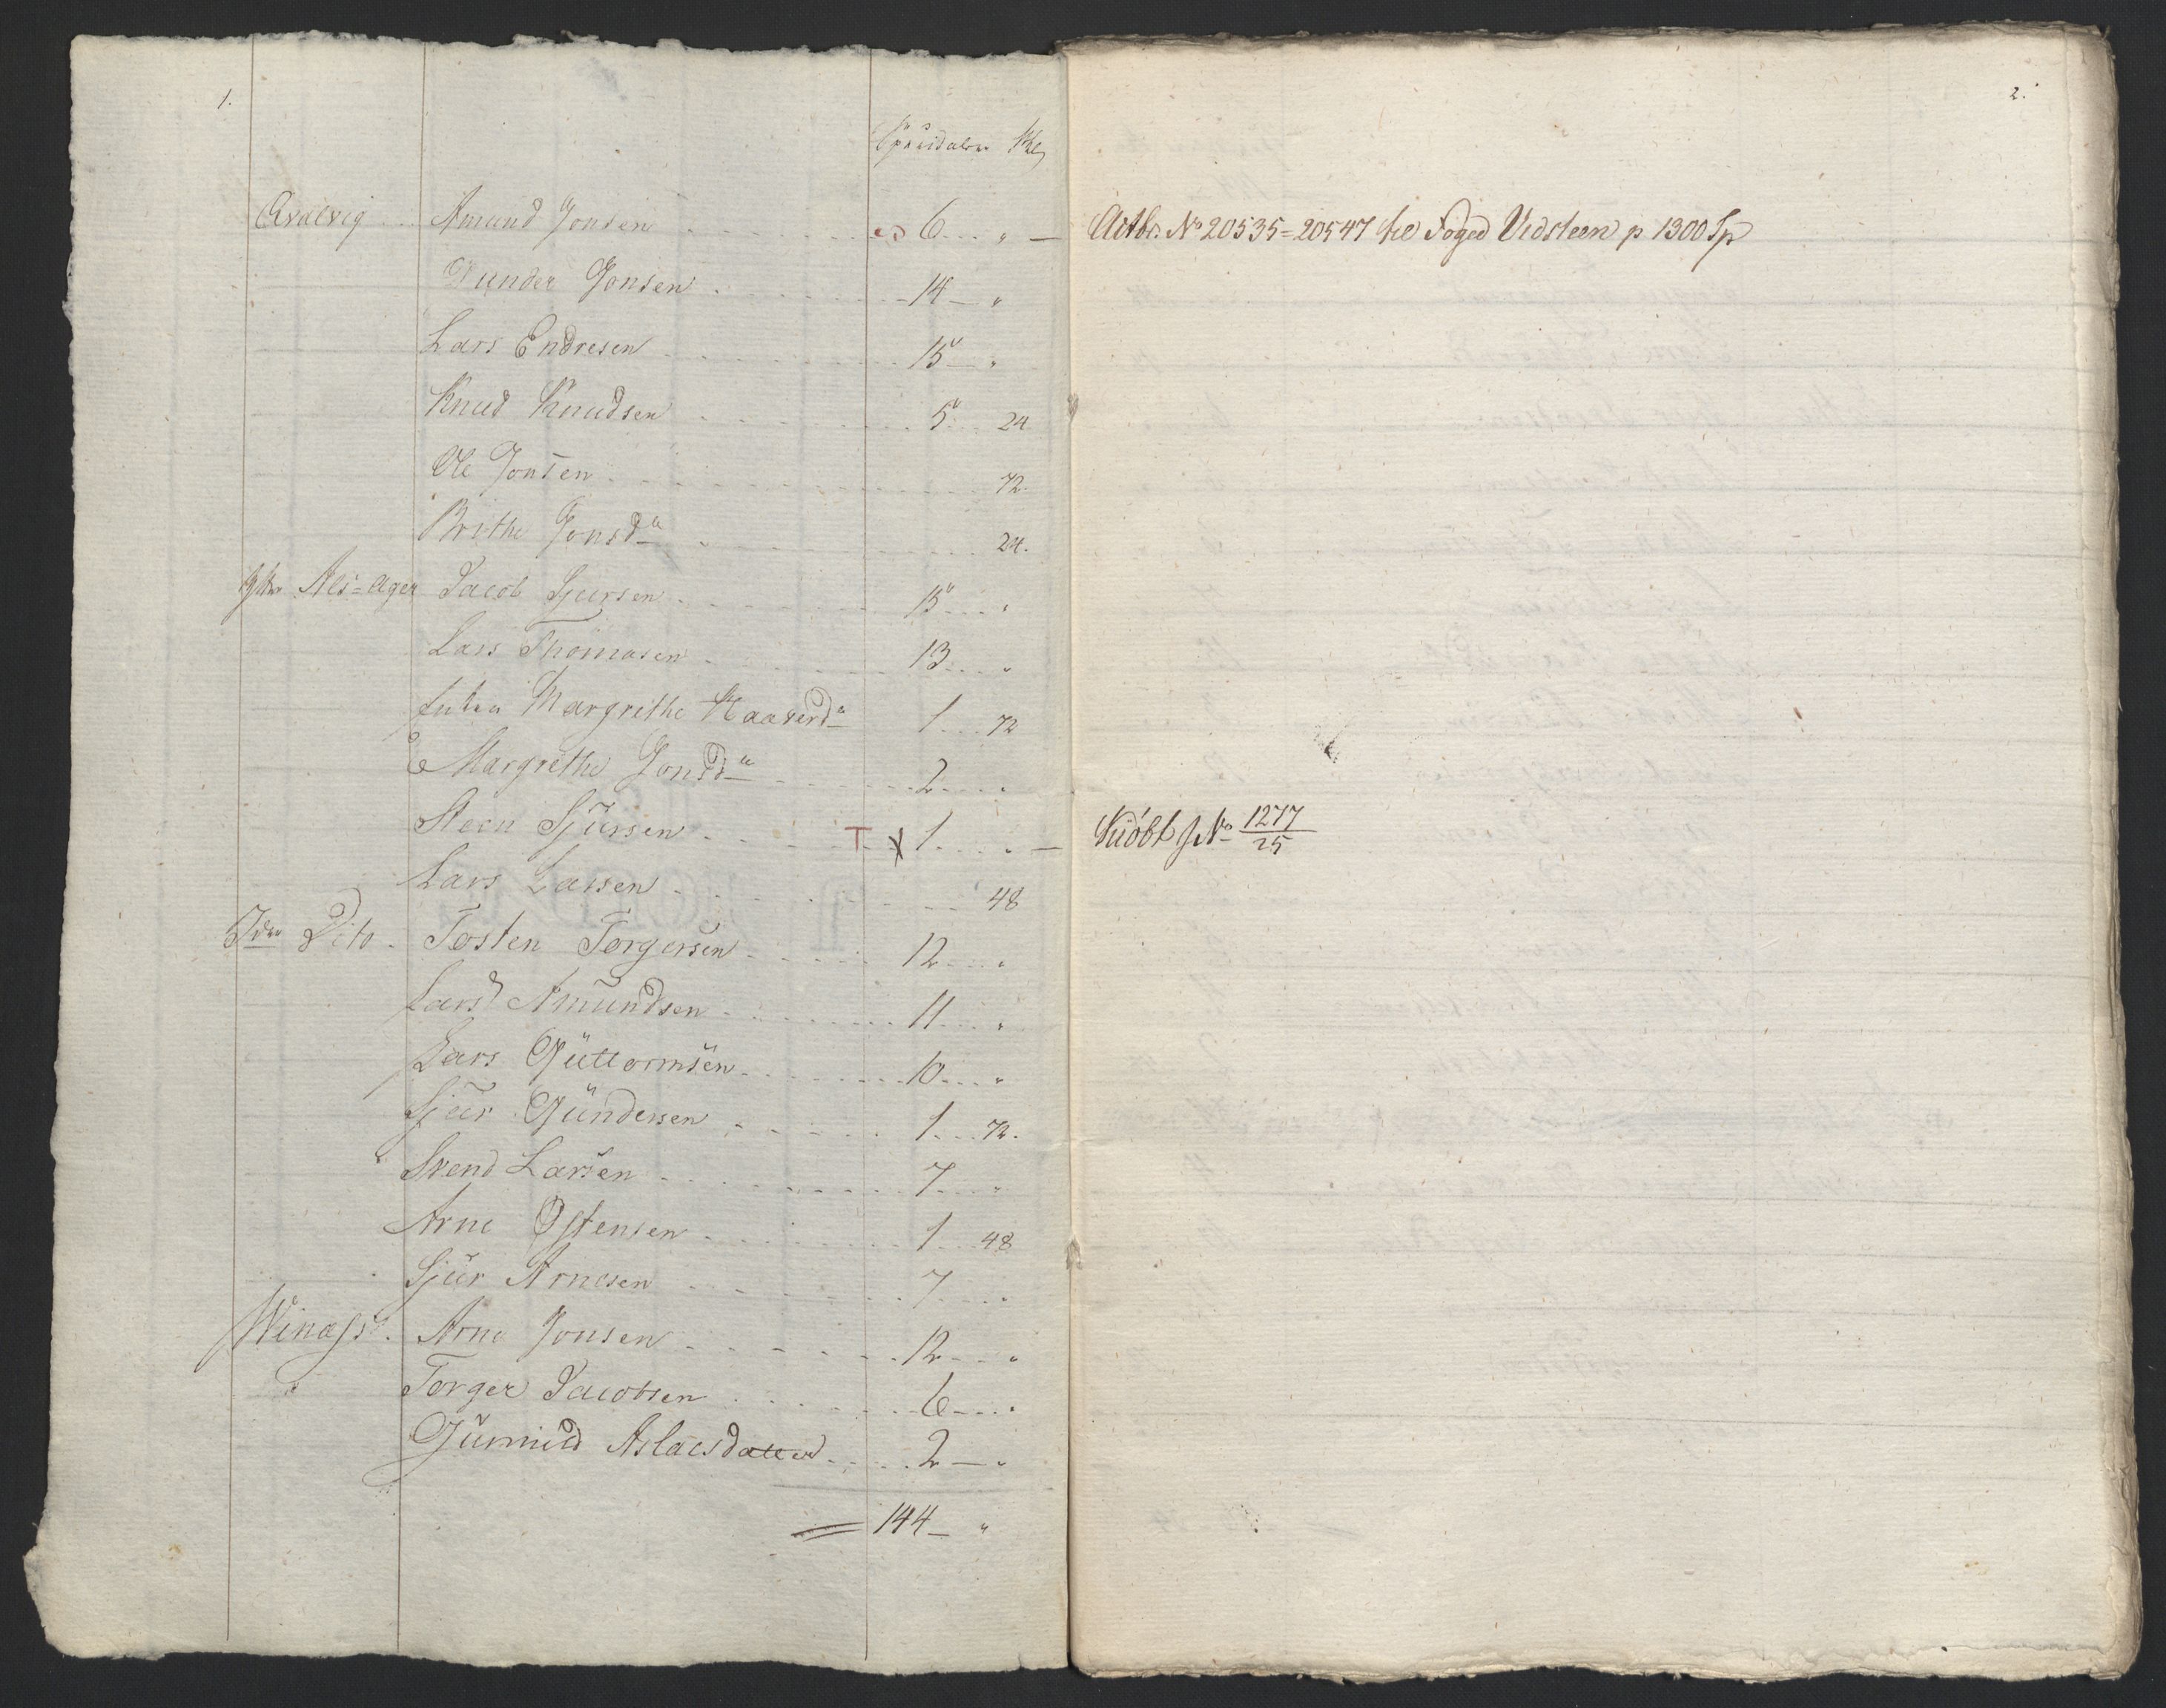 1.
Speciedaler Skl
Avalvig Amund Jonsen 6 "
Gunder Jonsen 14 "
Lars Endresen 15 "
Knud Knudsen 5 24
Ole Jonsen 72.
Brithe Jonsda 24.
Yttre Als=ager Jacob Sjursen 15 "
Lars Thomasen 13 "
Enken Margrethe Haaversda 1 72
Margrethe Jonsda 2 "
Steen Sjursen T x 1 "
Lars Larsen 48
Idre Dito Tosten Torgersen 12 "
Lars Amundsen 11 "
Lars Guttormsen 10 "
Sjur Gundersen 1 72.
Svend Larsen 7 "
Arne Østensen 1 48
Sjur Arnesen 7 "
Arne Jonsen 12 "
Torger Jacobsen 6 "
Gunnild Aslacsdatter 2 "
144 "
2.
Actbr. No 20535=20547 til Foged Vedsteen p 1300 Sp
Kiöbt J No 1277/25